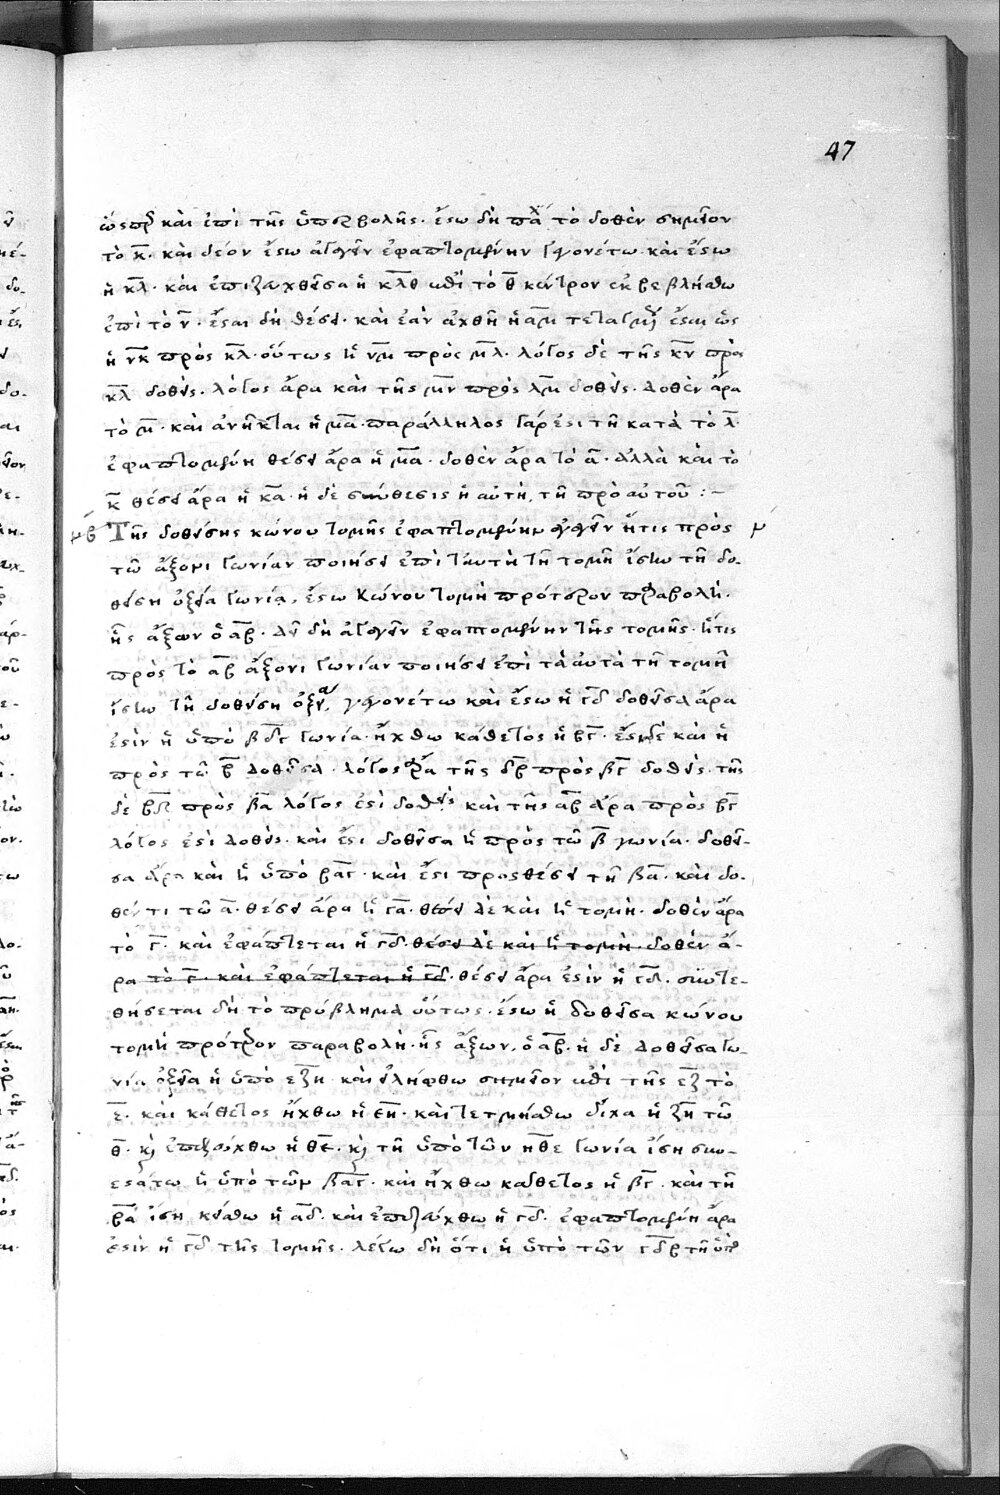 47
ὥσπερ καὶ ἐπὶ τῆς ὑπερβολῆς. ἔστω δὴ πάλιν τὸ δοθὲν σημεῖον
τὸ κ. καὶ δέον ἔστω ἀγαγεῖν ἐφαπτομένην γεγονέτω καὶ ἔστω
ἡ κλ. καὶ ἐπιζευχθεῖσα ἡ κλθ μετὰ τὸ θ κέντρον ἐκβεβλήσθω
ἐπὶ τὸ ν. ἔσται δὴ θέσει. καὶ ἐὰν ἀχθῆ ἡ αμ τεταγμένως ἔσται ὡς
ἡ νκ πρὸς κλ. οὕτως ἡ νμ πρὸς μλ. λόγος δὲ τῆς κν πρὸς
κλ δοθείς. λόγος ἄρα καὶ τῆς μν πρὸς λμ δοθείς. δοθὲν ἄρα
τὸ μ. καὶ ἀνῆκται ἡ μα. παράλληλος γάρ ἐστι τῆ κατὰ τὸ λ.
ἐφαπτομένη θέσει ἄρα ἡ μα. δοθὲν ἄρα τὸ α. ἀλλὰ καὶ τὸ
κ θέσει ἄρα ἡ κα. ἡ δὲ σύνθεσις ἡ αὐτὴ, τῆ πρὸ αὐτοῦ :–
μβ Τῆς δοθείσης κώνου τομῆς ἐφαπτομένην ἀγαγεῖν ἥτις πρὸς μ
τῶ ἄξονι γωνίαν ποιήσει ἐπὶ ταυτὴ τῆ τομῆ ἴσην τῆ δο-
θείση ὀξεία γωνία, ἔστω κώνου τομὴ πρότερον παραβολὴ.
ἧς ἄξων ὁ αβ. δεῖ δὴ ἀγαγεῖν ἐφαπτομένην τῆς τομῆς. ἥτις
πρὸς τὸ αβ ἄξονι γωνίαν ποιήσει ἐπὶ τὰ αὐτὰ τῆ τομῆ
ἴσην τῆ δοθείση ὀξεία, γεγονέτω καὶ ἔστω ἡ γδ δοθεῖσα ἄρα
ἐστὶν ἡ ὑπὸ βδγ γωνία. ἤχθω κάθετος ἡ βγ. ἔστι δὲ καὶ ἡ
πρὸς τῶ β δοθεῖσα. λόγος ἄρα τῆς δβ πρὸς βγ δοθείς. τῆς
δὲ βδ πρὸς βα λόγος ἐστὶ δοθείς καὶ τῆς αβ ἄρα πρὸς βγ
λόγος ἐστὶ δοθείς. καὶ ἔστι δοθεῖσα ἡ πρὸς τῶ β γωνία. δοθεῖ-
σα ἄρα καὶ ἡ ὑπὸ βαγ. καὶ ἔστι προςθέσει τῆ βα. καὶ δο-
θέντι τῶ α. θέσει ἄρα ἡ γα. θέσει δὲ καὶ ἡ τομὴ. δοθὲν ἄρα
τὸ γ. καὶ ἐφάπτεται ἡ γδ. θέσει δὲ καὶ ἡ τομὴ δοθὲν ἄ-
ρα τὸ γ. καὶ ἐφάπτεται ἡ γδ. θέσει ἄρα ἐστὶν ἡ γδ. συντε-
θήσεται δὴ τὸ πρόβλημα οὕτως. ἔστω ἡ δοθεῖσα κώνου
τομὴ πρότερον παραβολὴ. ἧς ἄξων, ὁ αβ. ἡ δὲ δοθεῖσα γω-
νία ὀξεῖα ἡ ὑπὸ εζη. καὶ εἰλήφθω σημεῖον μετὰ τῆς εζ τὸ
ε. καὶ κάθετος ἤχθω ἡ εη. καὶ τετμήσθω δίχα ἡ ζη τῶ
θ. καὶ ἐπεζεύχθω ἡ θε. καὶ τῆ ὑπὸ τῶν ηθε γωνία ἴση συν-
εστάτω ἡ ὑπὸ τῶν βαγ. καὶ ἤχθω κάθετος ἡ βγ. καὶ τῆ
βα ἴση κείσθω ἡ αδ. καὶ ἐπεζεύχθω ἡ γδ. ἐφαπτομένη ἄρα
ἐστὶν ἡ γδ τῆς τομῆς. λέγω δὴ ὅτι ἡ ὑπὸ τῶν γδβ τῆ ὑπὸ